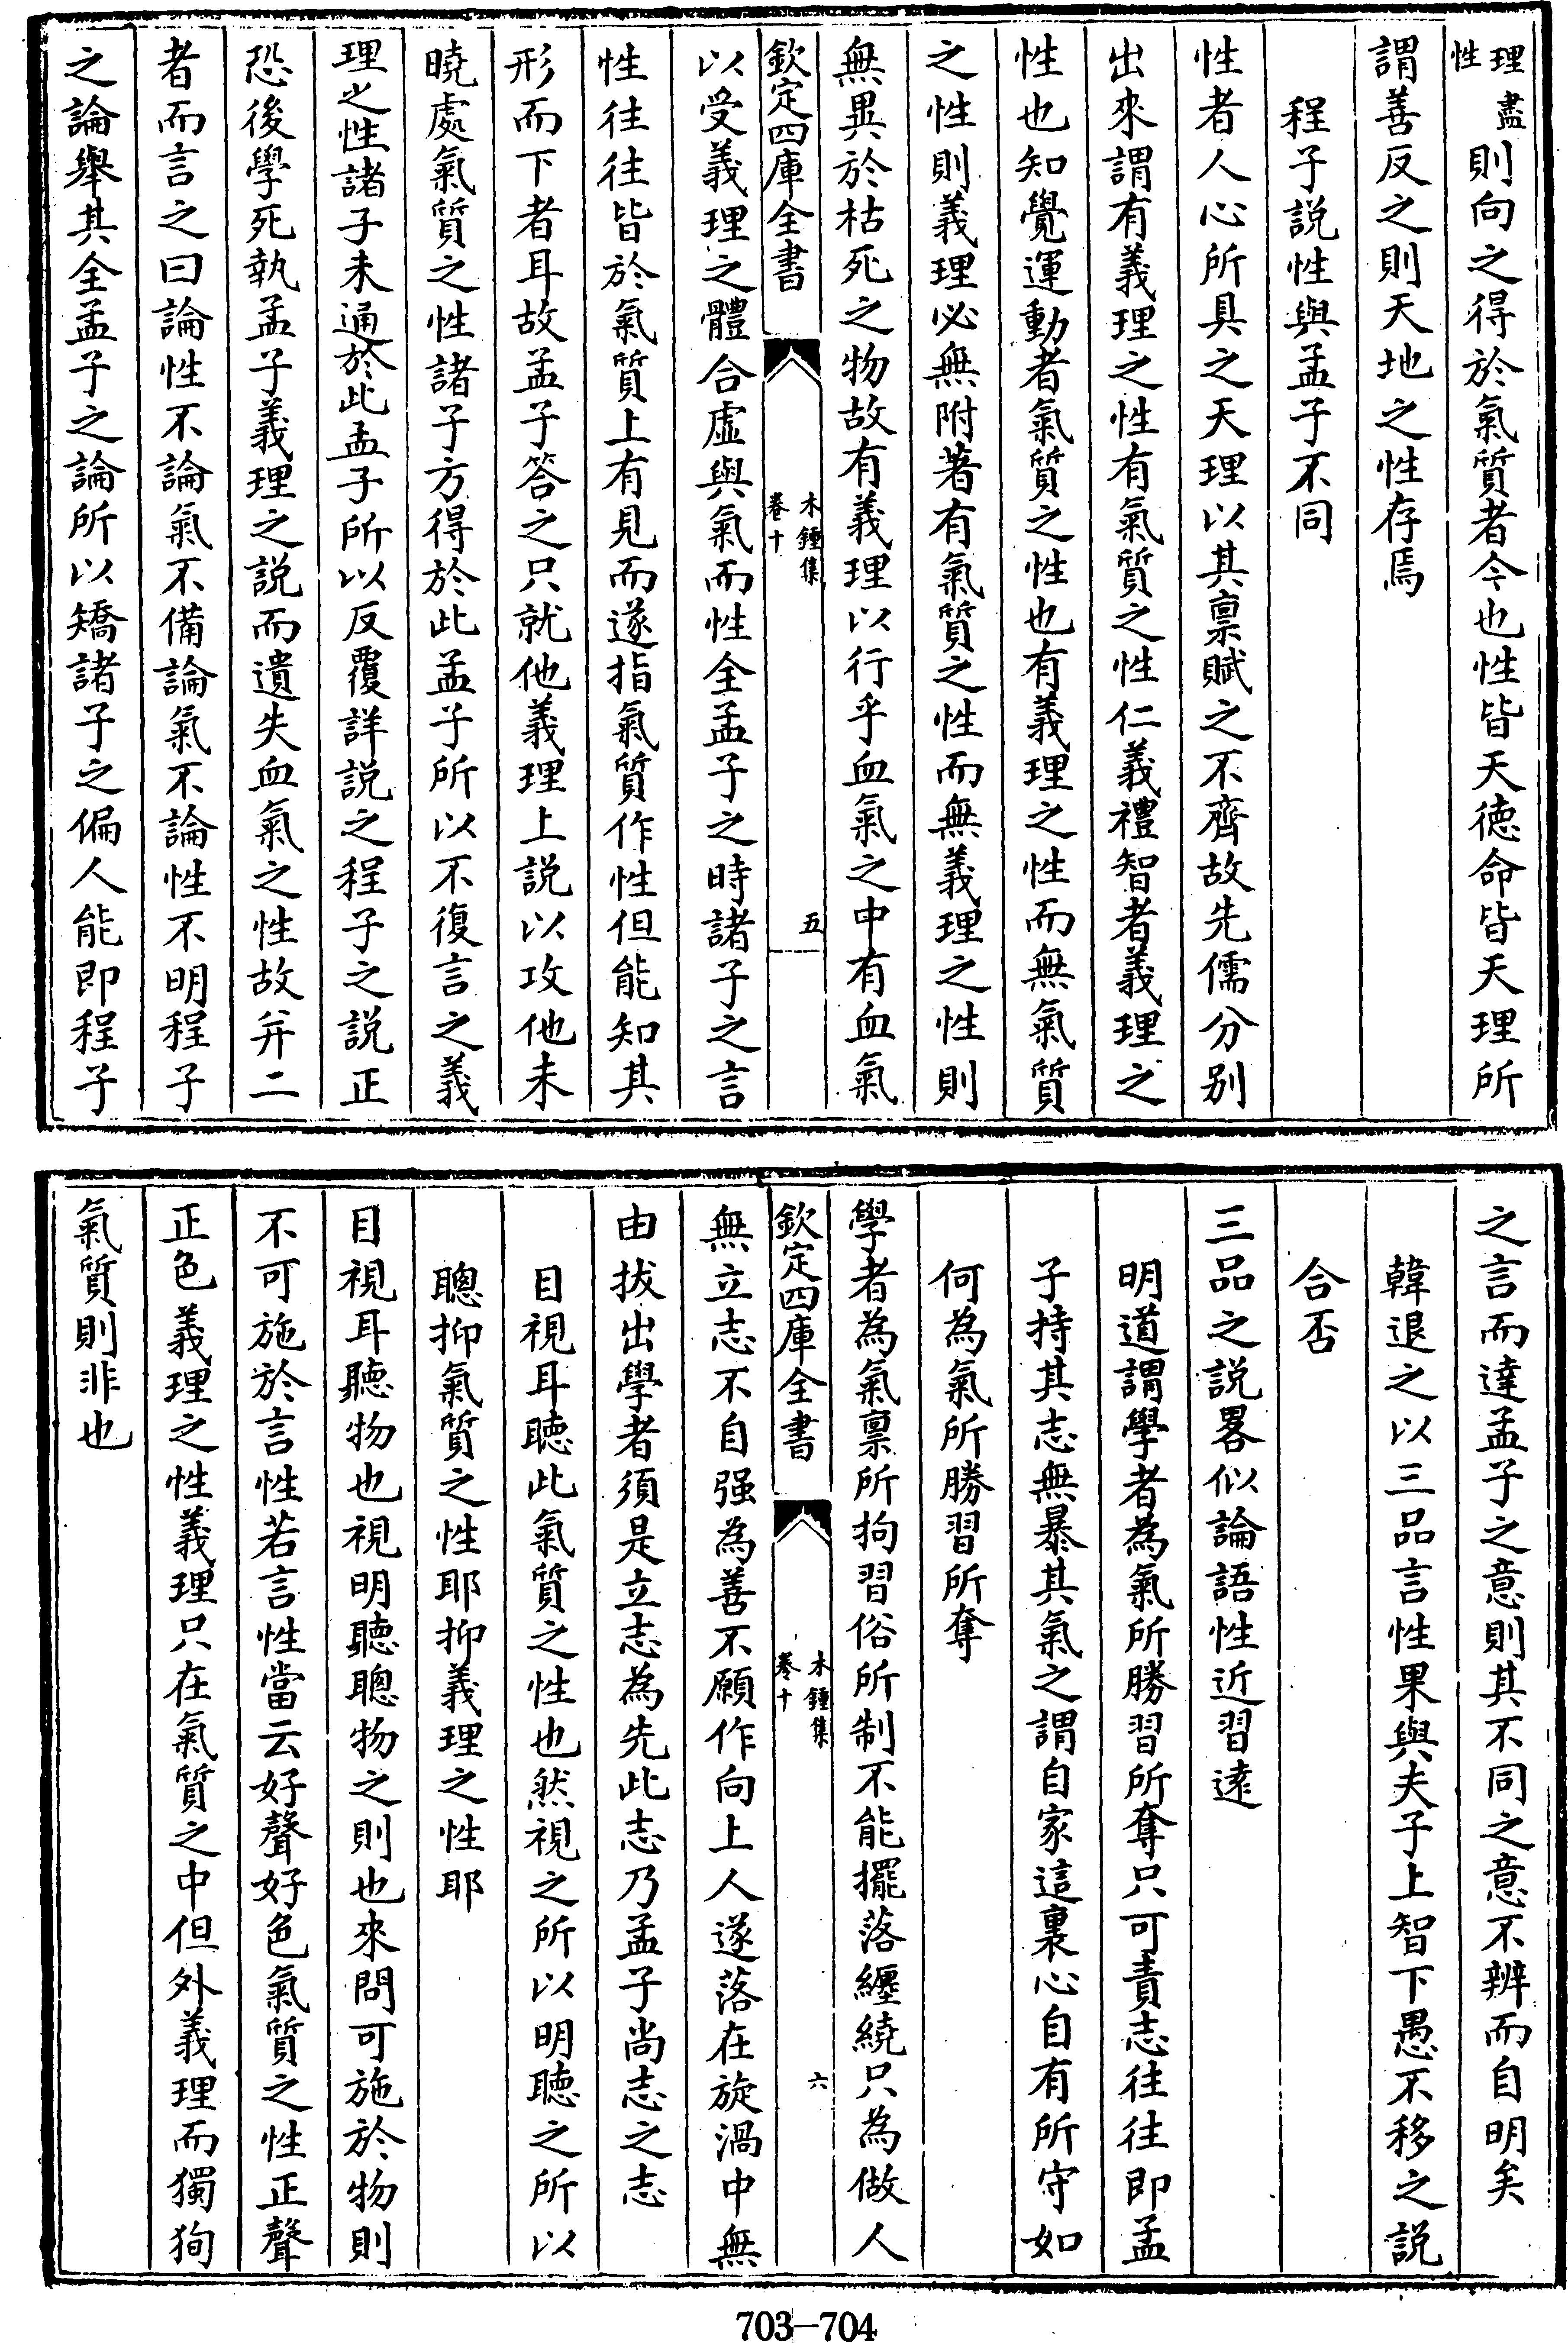 理盡
性
則向之得於氣質者今也性皆天徳命皆天理所
謂善反之則天地之性存焉
程子説性與孟子不同
性者人心所具之天理以其禀賦之不齊故先儒分别
出來謂有義理之性有氣質之性仁義禮智者義理之
性也知覺運動者氣質之性也有義理之性而無氣質
之性則義理必無附著有氣質之性而無義理之性則
無異於枯死之物故有義理以行乎血氣之中有血氣
欽定四庫全書
木鍾集
卷十
五
以受義理之體合虛與氣而性全孟子之時諸子之言
性往往皆於氣質上有見而遂指氣質作性但能知其
形而下者耳故孟子答之只就他義理上説以攻他未
曉處氣質之性諸子方得於此孟子所以不復言之義
理之性諸子未通於此孟子所以反覆詳説之程子之説正
恐後學死執孟子義理之説而遺失血氣之性故并二
者而言之曰論性不論氣不備論氣不論性不明程子
之論舉其全孟子之論所以矯諸子之偏人能即程子
之言而達孟子之意則其不同之意不辨而自明矣
韓退之以三品言性果與夫子上智下愚不移之説
合否
三品之説畧似論語性近習逺
明道謂學者為氣所勝習所奪只可責志往往即孟
子持其志無暴其氣之謂自家這裏心自有所守如
何為氣所勝習所奪
學者為氣禀所拘習俗所制不能擺落纒繞只為做人
欽定四庫全書
木鍾集
卷十
六
無立志不自强為善不願作向上人遂落在旋渦中無
由拔出學者須是立志為先此志乃孟子尚志之志
目視耳聽此氣質之性也然視之所以明聽之所以
聰抑氣質之性耶抑義理之性耶
目視耳聽物也視明聽聰物之則也來問可施於物則
不可施於言性若言性當云好聲好色氣質之性正聲
正色義理之性義理只在氣質之中但外義理而獨狥
氣質則非也
703—704